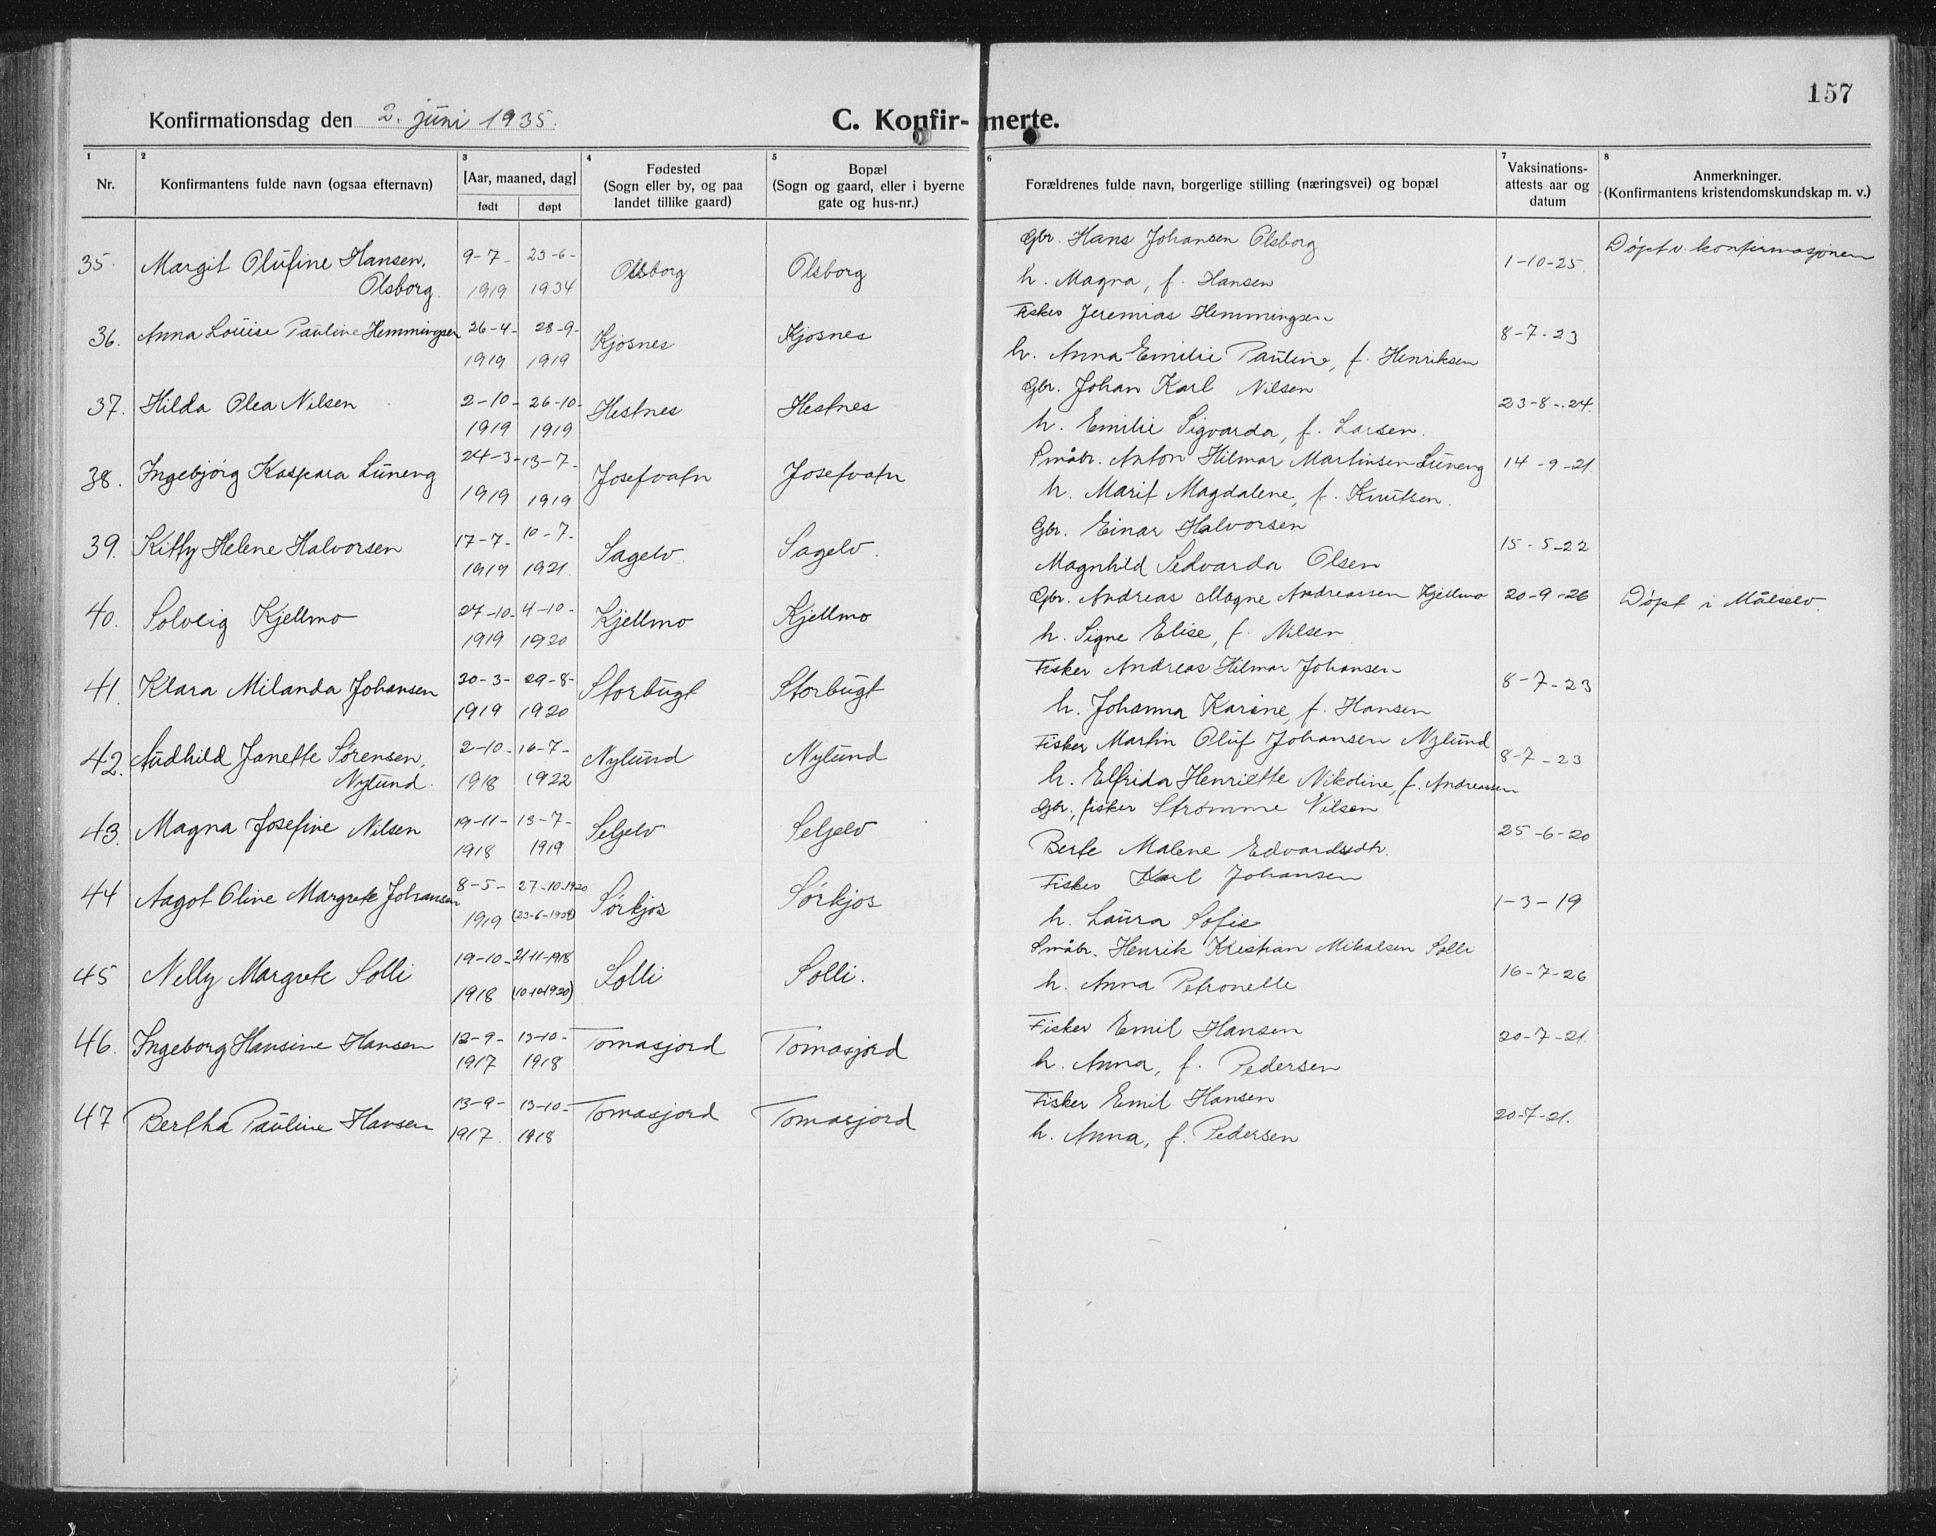 157
Konfirmationsdag den 2. juni 1935. C. Konfirmerte.
1 2 3 4 5 6 7 8
Nr. Konfirmantens fulde navn (ogsaa efternavn) [Aar, maaned, dag] født døpt Fødested (Sogn eller by, og paa landet tillike gaard) Bopæl (Sogn og gaard, eller i byerne gate og hus-nr.) Forældrenes fulde navn, borgerlige stilling (næringsvei) og bopæl Vaksinations-attests aar og datum Anmerkninger. (Konfirmantens kristendomskundskap m. v.)
35. Margit Olufine Hansen, 9-7- 23-6- Olsborg Olsborg Gbr. Hans Johansen Olsborg 1-10-25. Døpt v. konfirmasjonen
Olsborg. 1919 1934 h. Magna, f. Hansen
36. Anna Louise Pauline Hemmingsen 26-4- 28-9- Kjosnes Kjosnes Fisker Jeremias Hemmingsen 8-7-23
1919 1919 h. Anna Emilie Pauline, f. Henriksen
37. Hilda Olea Nilsen 2-10- 26-10- Hestnes Hestnes Gbr. Johan Karl Nilsen 23-8-24.
1919 1919 h. Emilie Sigvarda, f. Larsen.
38. Ingebjørg Kaspara Luneng 24-3- 13-7- Josefvatn Josefvatn Småbr. Anton Hilmar Martinsen Luneng 14-9-21
1919 1919 h. Marit Magdalene, f. Knutsen.
39. Kitty Helene Halvorsen 17-7- 10-7- Sagelv. Sagelv. Gbr. Einar Halvorsen 15-5-22
1919 1921 Magnhild Sedvarda Olsen
40. Solveig Kjellmo 27-10- 4-10- Kjellmo Kjellmo Gbr. Andreas Magne Andreassen Kjellmo 20-9-26 Døpt i Målselv.
1919 1920 h. Signe Elise, f. Nilsen
41. Klara Milanda Johansen 20-3- 29-8- Storbugt Storbugt Fisker Andreas Hilmar Johansen 8-7-23
1919 1920 h. Johanna Karine, f. Hansen
42. Audhild Janette Sørensen, 2-10- 16-7- Nylund Nylund Fisker Martin Oluf Johansen Nylund 8-7-23
Nylund. 1918 1922 h. Elfrida Henriette Nikoline, f. Andreassen
43. Magna Josefine Nilsen 19-11- 13-7- Seljelv Seljelv Gbr., fisker Strømme Nilsen 25-6-20
1918 1919 Berte Malene Edvardsdtr.
44 Aagot Oline Margrete Johansen 8-5- 27-10-1920 Sørkjos Sørkjos Fisker Karl Johansen 1-3-19
1919 (23-6-1934) h. Laura Sofie
45 Nelly Margrete Solli 19-10- 21-11-1918 Solli Solli. Småbr. Henrik Kristian Mikalsen Solli 16-7-26
1918 (10-10-1920) h. Anna Petronelle
46. Ingeborg Hansine Hansen 12-9- 13-10- Tomasjord Tomasjord Fisker Emil Hansen 20-7-21.
1917 1918 h. Anna, f. Pedersen
47 Bertha Pauline Hansen 13-9- 13-10- Tomasjord Tomasjord Fisker Emil Hansen 20-7-21.
1917 1918 h. Anna, f. Pedersen